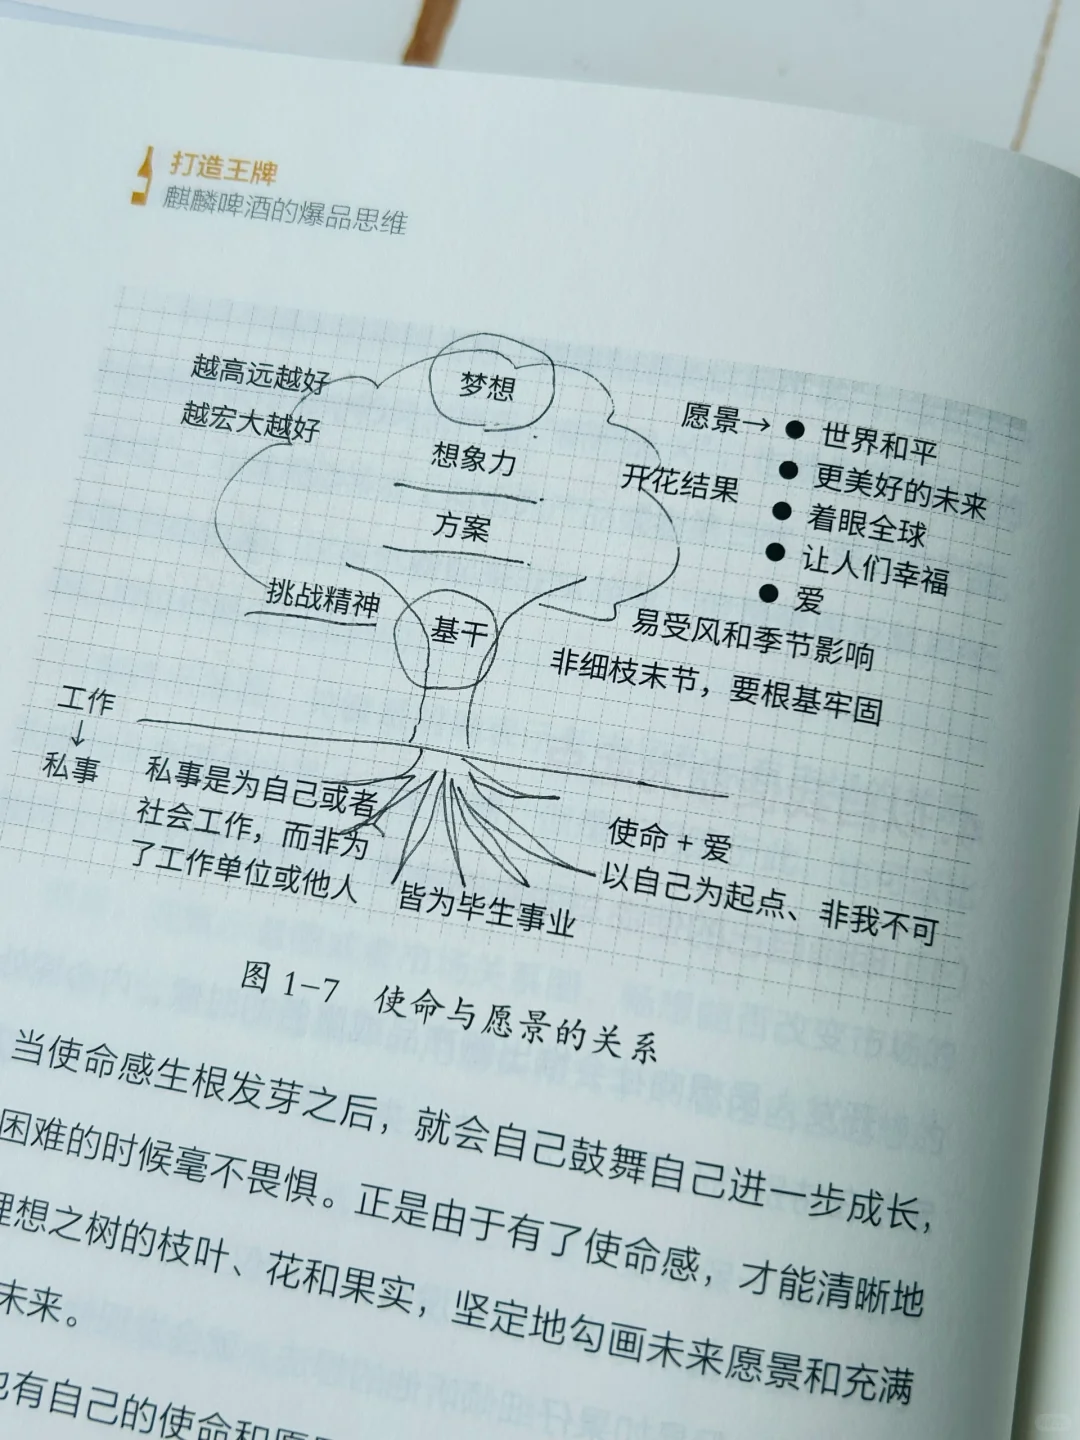 打造王牌
麒麟啤酒的爆品思维
越高远越好
越宏大越好
梦想
想象力
方案
挑战精神
基干
愿景→
开花结果
● 世界和平
● 更美好的未来
● 着眼全球
● 让人们幸福
● 爱
易受风和季节影响
非细枝末节，要根基牢固
工作
↓
私事
私事是为自己或者
社会工作，而非为
了工作单位或他人
皆为毕生事业
使命 + 爱
以自己为起点、非我不可
图 1-7 使命与愿景的关系
当使命感生根发芽之后，就会自己鼓舞自己进一步成长，
困难的时候毫不畏惧。正是由于有了使命感，才能清晰地
理想之树的枝叶、花和果实，坚定地勾画未来愿景和充满
未来。
有自己的使命和愿